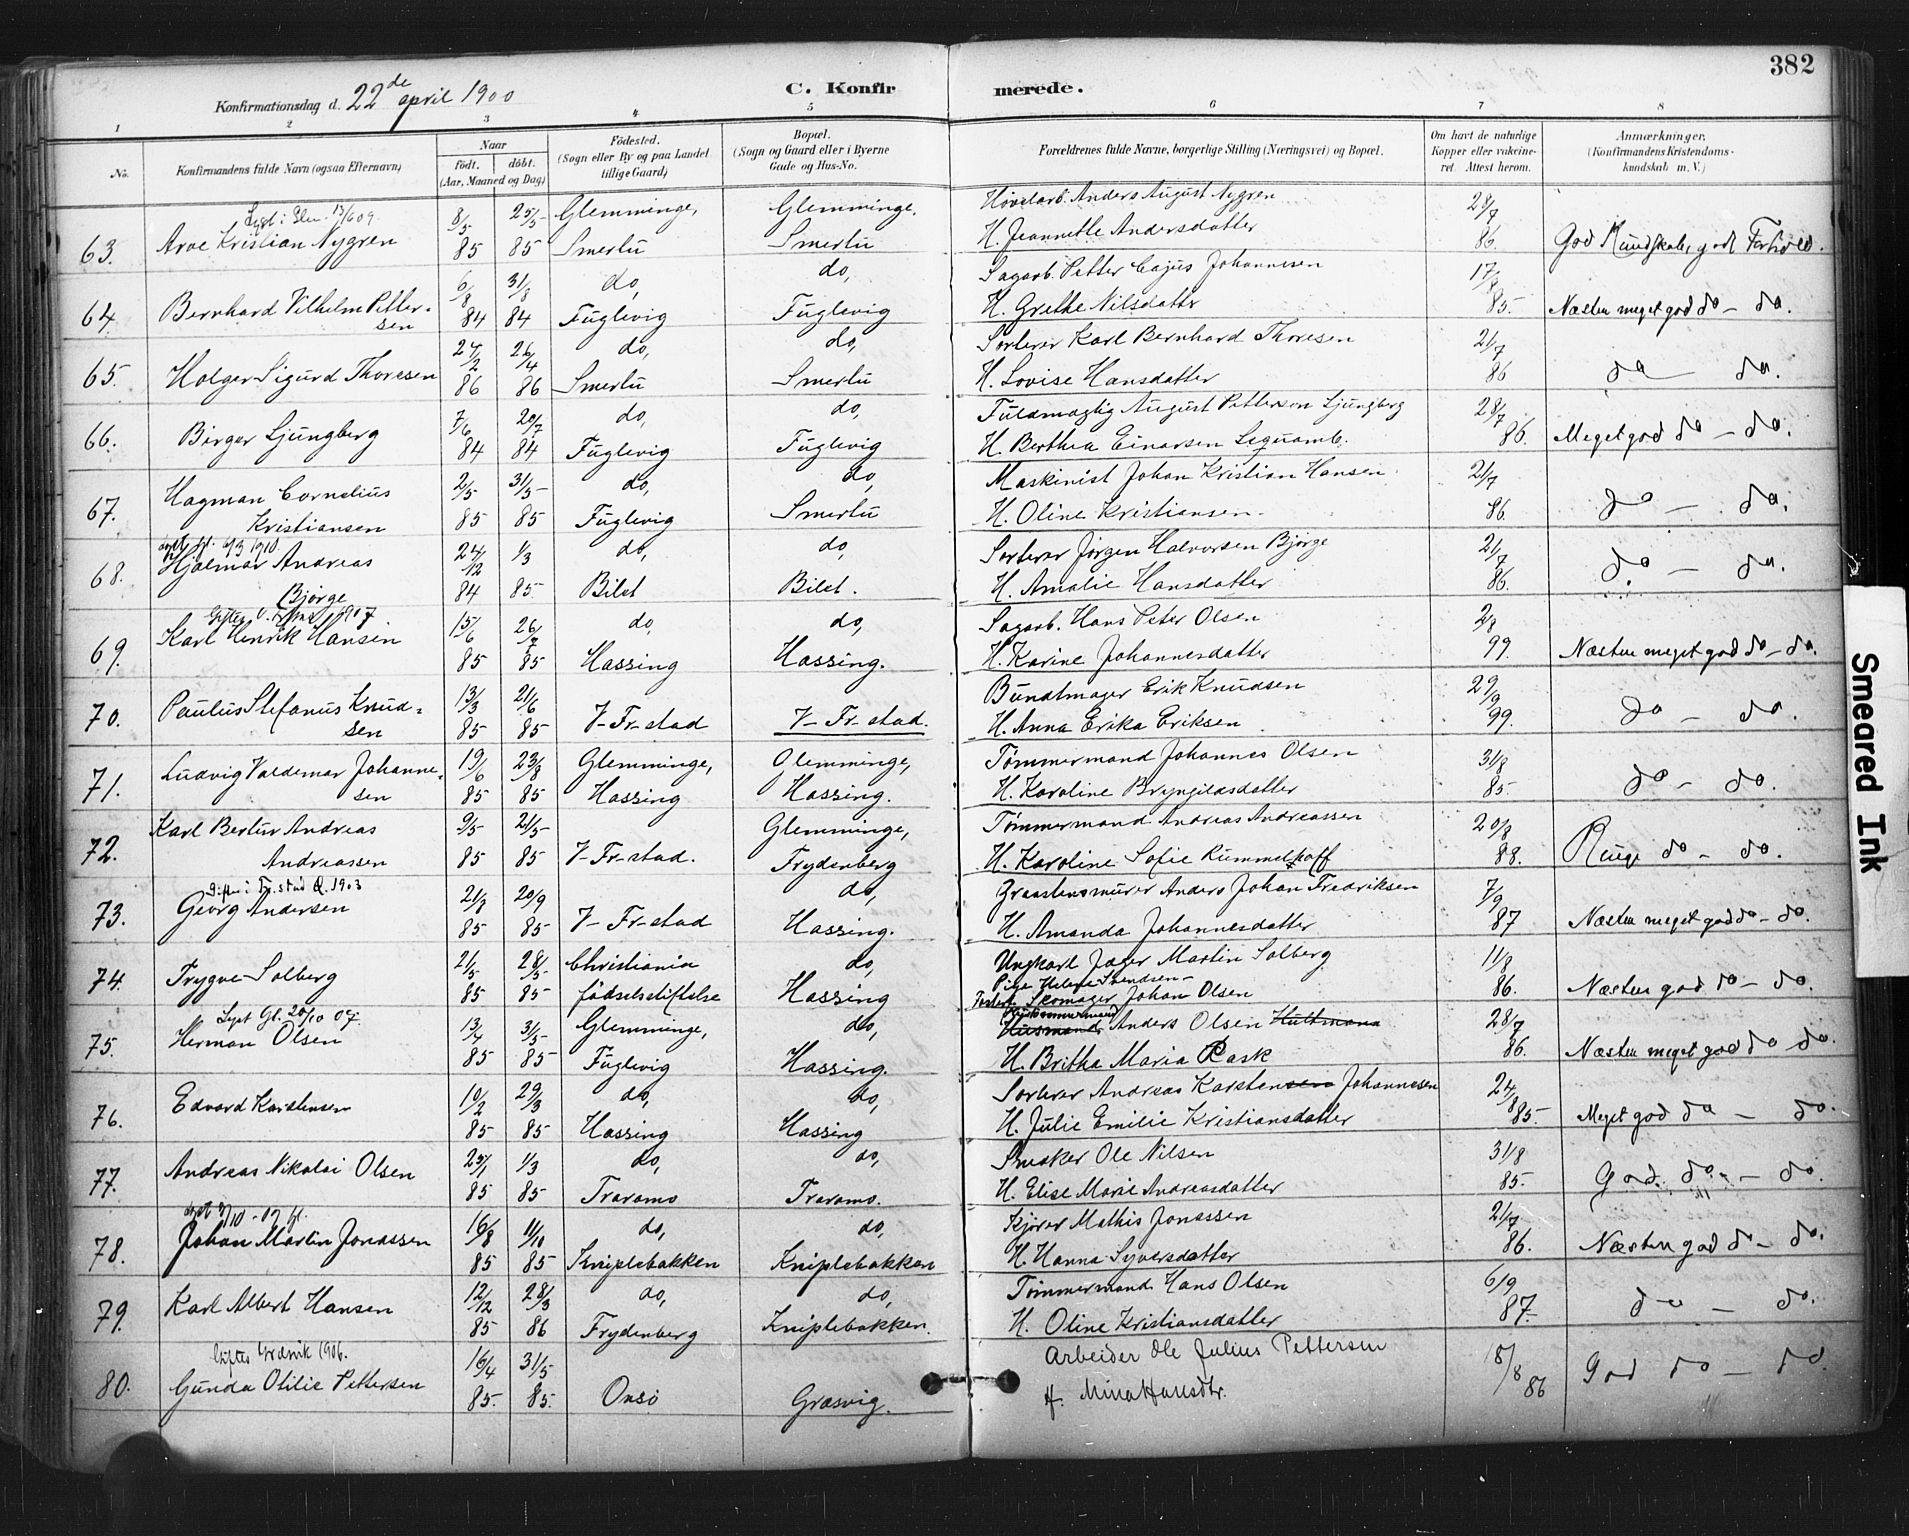 382
Konfirmationsdag d. 22de april 1900
C. Konfirmerede.
1 2 3 4 5 6 7 8
No.
Konfirmandens fulde Navn (ogsaa Efternavn)
Naar født. døbt. (Aar, Maaned og Dag)
Födested. (Sogn eller By og paa Landet tillige Gaard)
Bopæl. (Sogn og Gaard eller i Byerne Gade og Hus-No.
Forældrenes fulde Navne, borgerlige Stilling (Næringsvei) og Bopæl.
Om havt de naturlige Kopper eller vakcineret. Attest herom.
Anmærkninger. (Konfirmandens Kristendomskundskab m. V.)
63. Arve Kristian Nygren 8/5 85 25/5 85 Glemminge, Smertu Glemminge, Smertu Høvelarb. Anders August Nygren
H. Jeannette Andersdatter 28/7 86. God Kundskab, godt Forhold.
64. Bernhard Vilhelm Pettersen 6/8 84 31/8 84 do, Fuglevig do, Fuglevig Sagarb. Petter Cajus Johannesen
H. Grethe Nilsdatter 17/8 85. Næsten meget god do – do.
65. Holger Sigurd Thoresen 27/2 86 26/4 86 do, Smertu do, Smertu Sorterer Karl Bernhard Thoresen
H. Lovise Hansdatter 21/7 86 do – do.
66. Birger Ljungberg 7/6 84 20/7 84 do, Fuglevig do, Fuglevig Fuldmægtig August Petterson Ljungberg
H. Berthea Einarsen 28/7 86. Meget god do – do.
67. Hagman Cornelius Kristiansen 2/5 85 31/5 85 do, Fuglevig do, Smertu Maskinist Johan Kristian Hansen
H. Oline Kristiansen. 21/7 86. do – do.
68. Hjalmar Andreas Bjørge 24/12 84 1/3 85. do, Bilet do, Bilet. Sorterer Jørgen Halvorsen Bjørge
H. Amalie Hansdatter 21/7 86. do. – do.
69. Karl Henrik Hansen 15/6 85 26/7 85 do, Hassing do, Hassing. Sagarb. Hans Peter Olsen
H. Karine Johannesdatter 2/8 99. Næsten meget god do – do.
70. Paulus Stefanus Knudsen 13/3 85 21/6 85 V-Fr-stad V-Fr-stad. Bundtmager Erik Knudsen
H. Anna Erika Eriksen 29/9 99. do – do.
71. Ludvig Valdemar Johannesen 19/6 85 23/8 85 Glemminge, Hassing Glemminge, Hassing. Tømmermand Johannes Olsen
H. Karoline Bryngilasdatter 31/8 85. do – do.
72. Karl Bertus Andreas Andreassen 9/5 85 21/5 85 V-Fr-stad. Glemminge, Frydenberg Tømmermand Andreas Andreassen
H. Karoline Sofie Rummelhoff 20/8 88. Ringe do – do.
Gift i Fr.stad D. 1903
73. Georg Andersen 21/8 85 20/9 85. V-Fr-stad do, Hassing. Graastensmurer Anders Johan Fredriksen
H. Amanda Johannesdatter 7/9 87 Næsten meget god do – do.
74. Trygve Solberg 21/5 85 28/5 85 Christiania fødselsstiftelse do, Hassing Ungkarl Jæger Martin Solberg
Pige Helene Svendsen –
Skomager Johan Olsen 11/8 86. Næsten god do – do.
Lyst Gl. 20/10 07.
75. Herman Olsen 13/4 85 31/5 85 Glemminge, Fuglevig do, Hassing. Husmand Anders Olsen Hultmann
H. Britha Maria Rask 28/7 86. Næsten meget god do do.
76. Edvard Karstensen 10/2 85 29/3 85 do, Hassing do, Hassing Sorterer Andreas Karstensen Johannesen
H. Julie Emilie Kristiansdatter 24/8 85. Meget god do – do.
77. Andreas Nikolai Olsen 25/1 85 1/3 85 do, Traramo do, Traramo. Snedker Ole Nilsen
H. Elise Marie Andreasdatter 31/8 85. God. do – do
78. Johan Martin Jonassen 16/8 85 11/10 85 do, Kniplebakken do, Kniplebakken Kjører Mathis Jonassen
H. Hanna Syversdatter 21/7 86. Næsten god do – do.
79. Karl Albert Hansen 12/12 85 28/3 86 do, Frydenberg do, Kniplebakken. Tømmermand Hans Olsen
H. Oline Kristiansdatter 6/9 87. do – do.
80. Gunda Otilie Pettersen 16/4 85. 31/5 85. Onsö Græsvig. Arbeider Ole Julius Pettersen
H. Mina Hansdtr. 18/8 86 God do – do.
Smeared Ink